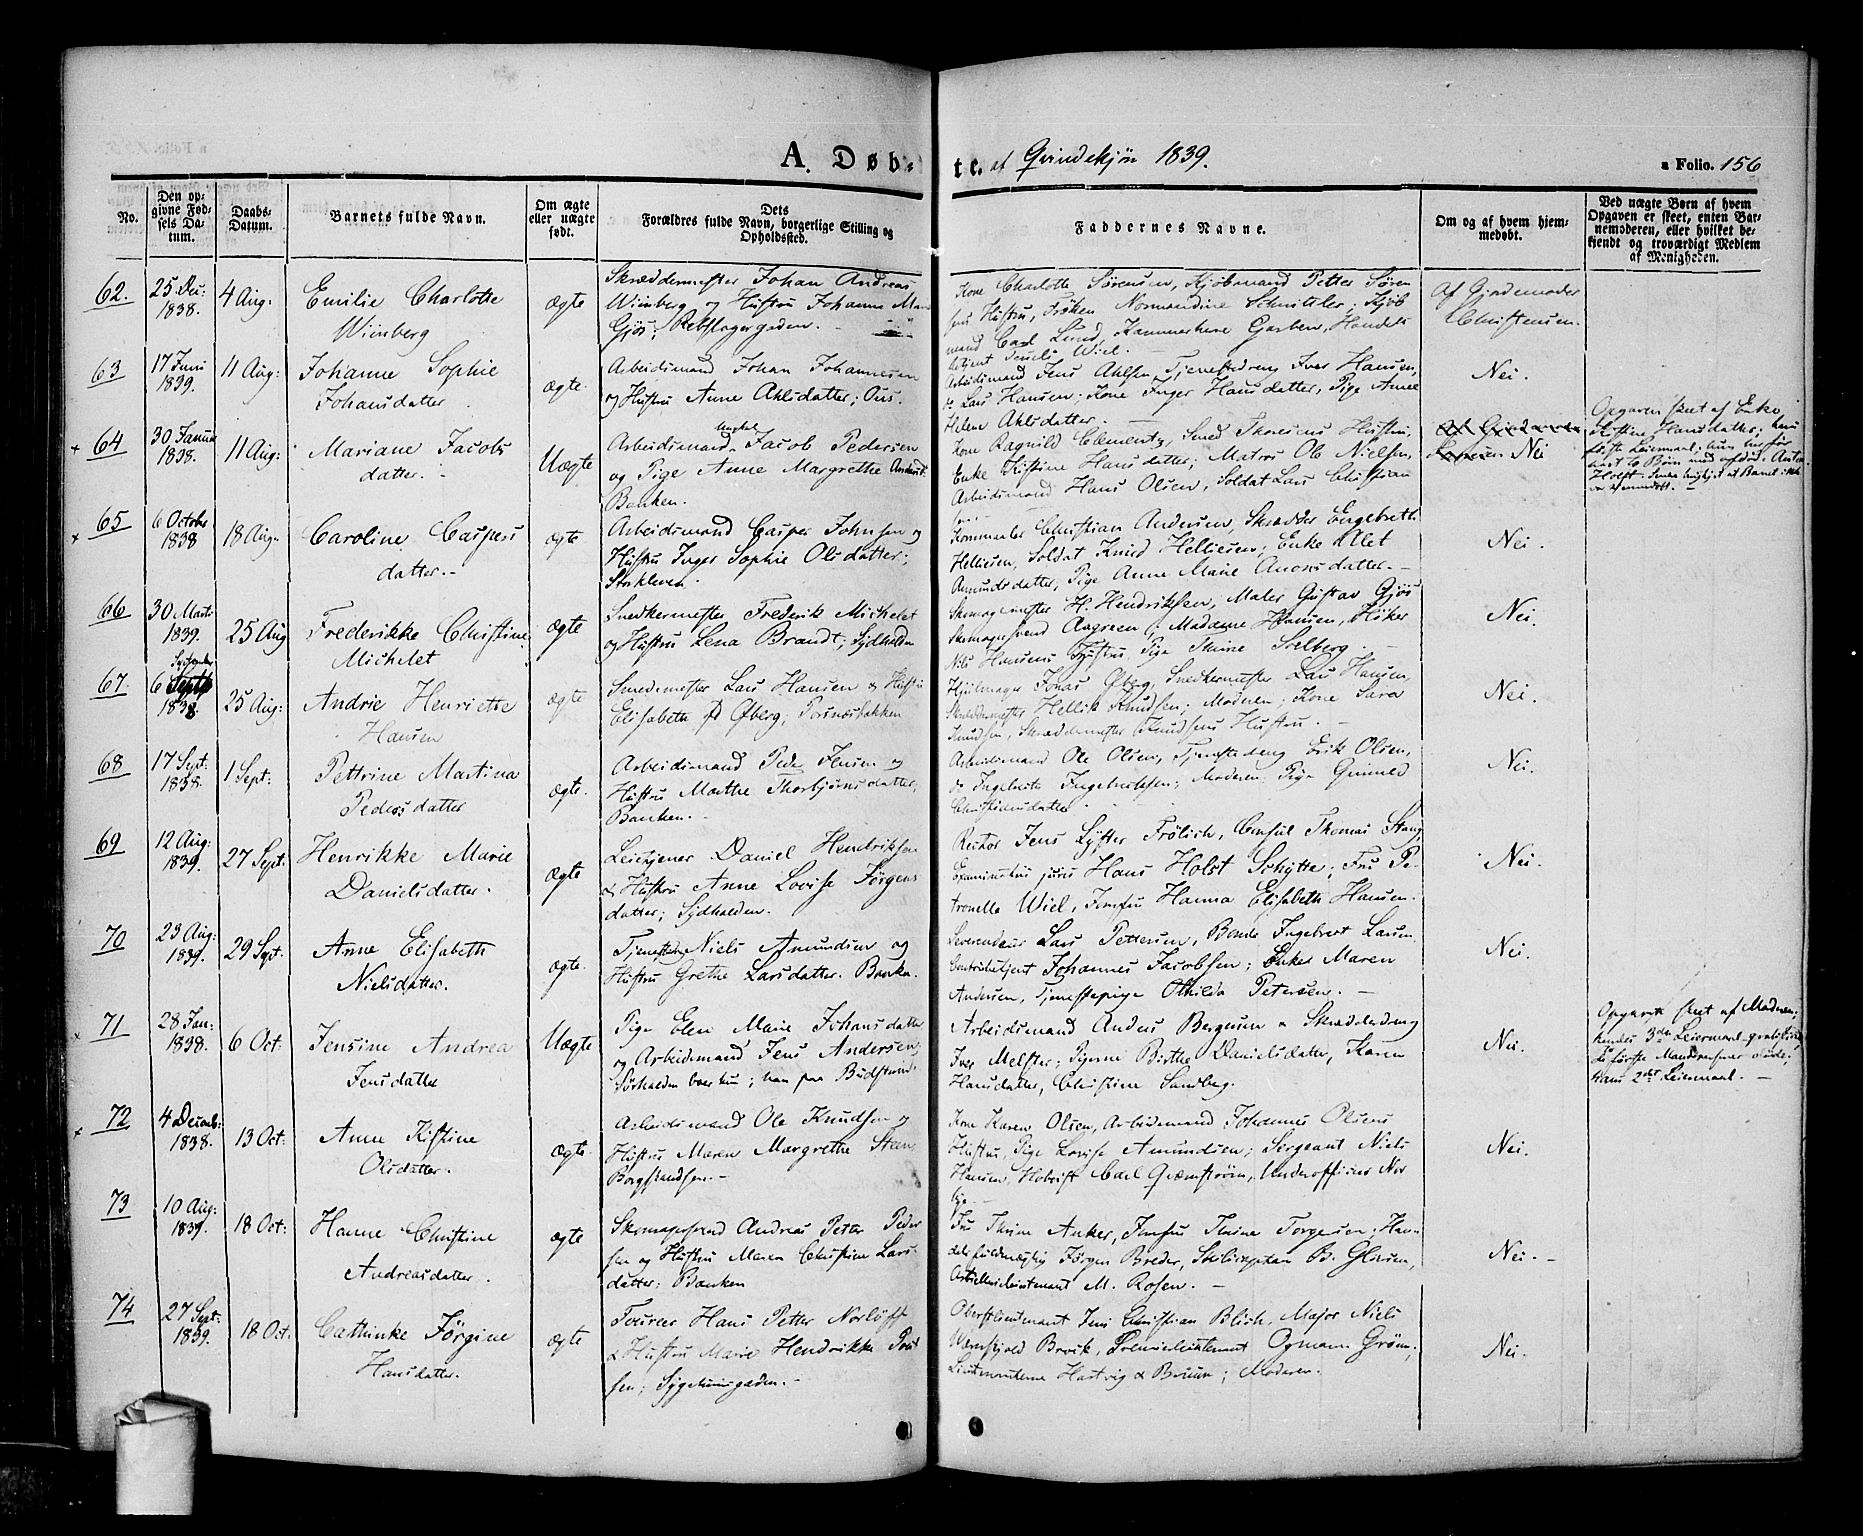 A. Døb-
te. af Qvindekjøn 1839.
a Folio. 156
No.
Den op-
givne Fød-
sels Da-
tum.
Daabs-
Datum.
Barnets fulde Navn.
Om ægte
eller uægte
født.
Dets
Forældres fulde Navn, borgerlige Stilling og
Opholdssted.
Faddernes Navne.
Om og af hvem hjem-
medøbt.
Ved uægte Børn af hvem
Opgaven er skeet, enten Bar-
nemoderen, eller hvilket be-
kjendt og troværdigt Medlem
af Menigheden.
62.
25 Dec:
1838.
4 Aug:
Emilie Charlotte
Wimberg
ægte
Skræddermester Johan Andreas
Wimberg og Hustru Johanne
Gjøs; Rebslagergaden.
Kone Charlotte Sørensen, Kjøbmand Petter Søren
sens Hustru, Frøken Normandine Schnitler, Kjøb
mand Carl Lund, Kammerherre Garben, Handels
betjent Wiel.
Af Gjordemoder
Christensen.
63
17 Juni
1839.
11 Aug:
Johanne Sophie
Johansdatter
ægte
Arbeidsmand Johan Johannesen
og Hustru Anne Ahlsdatter; Ous.
Arbeidsmand Jens Ahlsen, Tjenestedreng Iver Hansen,
do Lars Hansen; Kone Inger Hansdatter, Pige Anne
Helene Ahlsdatter.
Nei.
64
30 Januar
1838.
11 Aug:
Mariane Jacobs
datter.
Uægte
Arbeidsmand Ungkal Jacob Pedersen
og Pige Anne Margrethe Andersd:
Banken.
Kone Ragnild Clementz, Smed Thoresens Hustru,
Enke Kistine Hansdatter; Matros Ole Nielsen,
Arbeidsmand Hans Olsen, Soldat Lars Christian
sen.
Nei
Opgaven skeet af Enke
Kistine Hansdatter; hans
første Leiermaal; hun har før
havt to Børn med afdøde Anton
Holst.
65
6 October
1838
18 Aug.
Caroline Caspers
datter.
ægte
Arbeidsmand Casper Johnsen og
Hustru Inger Sophie Olsdatter;
Stokleven.
Kornmaaler Christian Andersen, Skrædder Engebreth
Helliesen, Soldat Knud Helliesen; Enke Alet
Amundsdatter, Pige Anne Marie Aronsdatter.
Nei.
66
30 Marts
1839.
25 Aug
Frederikke Christine
Michelet
ægte
Snedkermester Frederik Michelet
og Hustru Lena Brandt; Sydhalden
Skomagermester H. Hendriksen, Maler Gustav Gjøs
Skomagersvend Aagreen; Madame Hansen, Høker
Nils Hansens Hustru, Pige Thrine Solberg.
Nei.
67
September
6 Septb
1838.
25 Aug:
Andrie Henriette
Hansen
ægte
Smedemester Lars Hansen & Hustru
Elisabeth f Øberg; Porsnæsbakken
Hjulmager Jonas Øberg, Snedkermester Lars Hansen,
Skræddermester Hellik Knudsen; Moderen; Kone Sara
Knudsen, Skræddermester Knudsens Hustru.
Nei.
68
17 Sept.
1838.
1 Sept:
Pettrine Martina
Pedersdatter
ægte.
Arbeidsmand Peder Jensen og
Hustru Marthe Thorbjørnsdatter;
Banken.
Arbeidsmand Ole Olsen, Tjenestedreng Erik Olsen,
do Ingebrigt Ingebrethsen; Moderen, Pige Gunild
Christiansdatter.
Nei.
69
12 Aug:
1839.
27 Sept:
Henrikke Marie
Danielsdatter.
ægte
Leietjener Daniel Hendriksen
& Hustru Anne Lovise Jørgens
datter; Sydhalden.
Rector Jens Lyster Frölich, Consul Thomas Stang
Examinatus juris Hans Holst Schytte; Fru Pe-
tronelle Wiel, Jomfru Hanna Elisabeth Hansen.
Nei.
70
23 Aug:
1839.
29 Sept.
Anne Elisabeth
Nielsdatter.
ægte
Tjenestedreng Niels Amundsen og
Hustru Grethe Larsdatter. Banken
Leverendeur Lars Pettersen, Bonde Ingebret Larsen
Johannes Jacobsen; Enke Maren
Andersen, Tjenestepige Othilda Petersen.
Nei.
71
28 Jan:
1838.
6 Oct.
Jensine Andrea
Jensdatter
Uægte
Pige Elen Marie Johansdatter
og Arbeidsmand Jens Andersen,
Sørhalden boer hun; han paa Budstrand.
Arbeidsmand Anders Bergesen & Skrædderdreng
Iver Melster; Pigerne Birthe Danielsdatter, Karen
Hansdatter, Christine Sandberg.
Nei.
Opgaven skeet af Moderen;
hendes 3die Leiermaal
de første Mandspersoner døde;
hans 2det Leiermaal.
72
4 Decemb:
1838.
13 Oct:
Anne Kistine
Olsdatter.
ægte
Arbeidsmand Ole Knudsen og
Hustru Maren Margrethe Steen;
Borgstrandsen.
Kone Karen Olsen, Arbeidsmand Johannes Olsens
Hustru, Pige Lovise Amundsen; Sergeant Niels
Hansen, Hoboist Carl Qvamstrøm, Underofficier Nor
bye.
Nei.
73
10 Aug:
1839.
18 Oct:
Hanne Christine
Andreasdatter.
ægte
Skomagersvend Andreas Peter Peder
sen og Hustru Maren Christine Lars
datter; Banken
Fru Thrine Anker, Jomfru Thrine Torgersen; Han-
delsfuldmægtig Jørgen Breder, B: Glosen,
Artillerilieutenant M. Rosen.
Nei.
74
27 Sept:
1839.
18 Oct.
Cathinke Jörgine
Hansdatter.
ægte
Fourer Hans Petter Norløff
& Hustru Marie Hendrikke Poul
sen; Sygehuusgaden.
Oberstlieutenant Jens Christian Blich, Major Niels
Werenskjold Brvik, Premierlieutenant Ogmann Grøn;
Lieutenanterne Hartvig & Bruun; Moderen.
Nei.